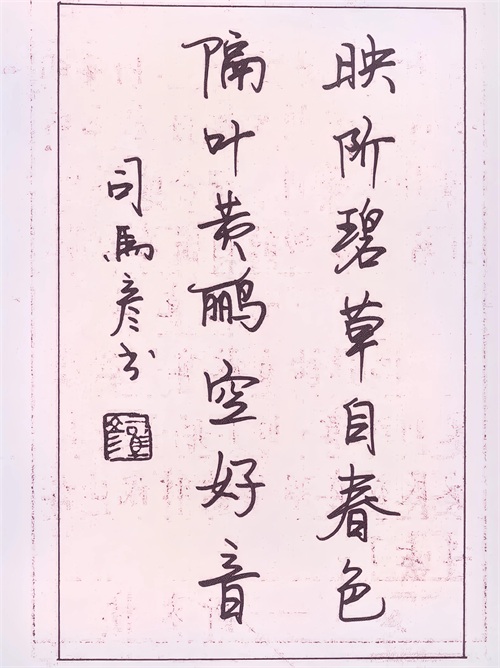 映阶碧草自春色
隔叶黄鹂空好音
司馬彦书